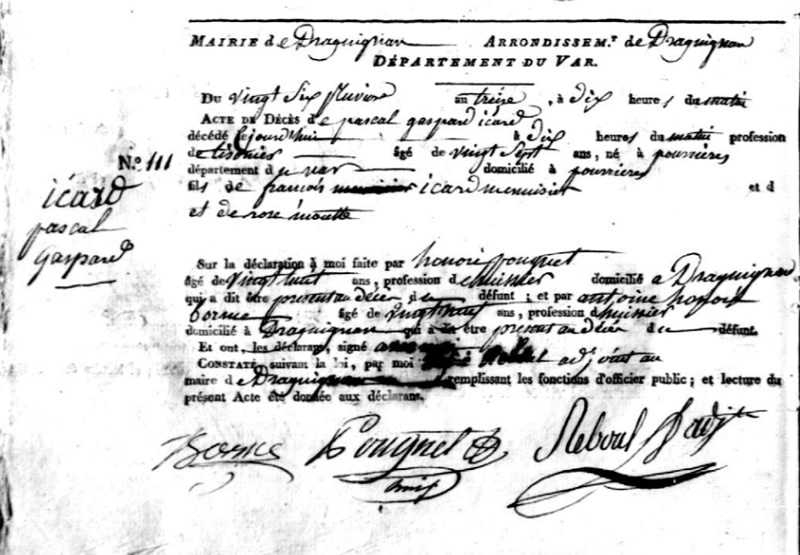 MAIRIE de Draguignan ARRONDISSEM.T de Draguignan
DÉPARTEMENT DU VAR.
DU vingt Six pluviose an treize, à dix heures du matin
ACTE DE DÉCÈS de pascal gaspard icard
décédé cejourdhui à dix heures du matin profession
de âgé de vingt Sept ans, né à pourrières
département du var domicilié à pourrières
fils de francois icard menuisier et d
et de rose moutte
N.o 111
icard
pascal
Gaspard
Sur la déclaration à moi faite par honoré pougnet
âgé de vingt huit ans, profession d'huissier domicilié a Draguignan
qui a dit être present au décès du défunt; et par antoine honoré
borme âgé de vingt huit ans, profession d'huissier
domicilié à Draguignan qui a dit être present au décès du défunt.
Et ont, les déclarans, signé
CONSTATÉ, suivant la loi, par moi Reboul adjoint au
maire de Draguignan remplissant les fonctions d'officier public; et lecture du
présent Acte été donnée aux déclarans.
Borme Pougnet Reboul adjt